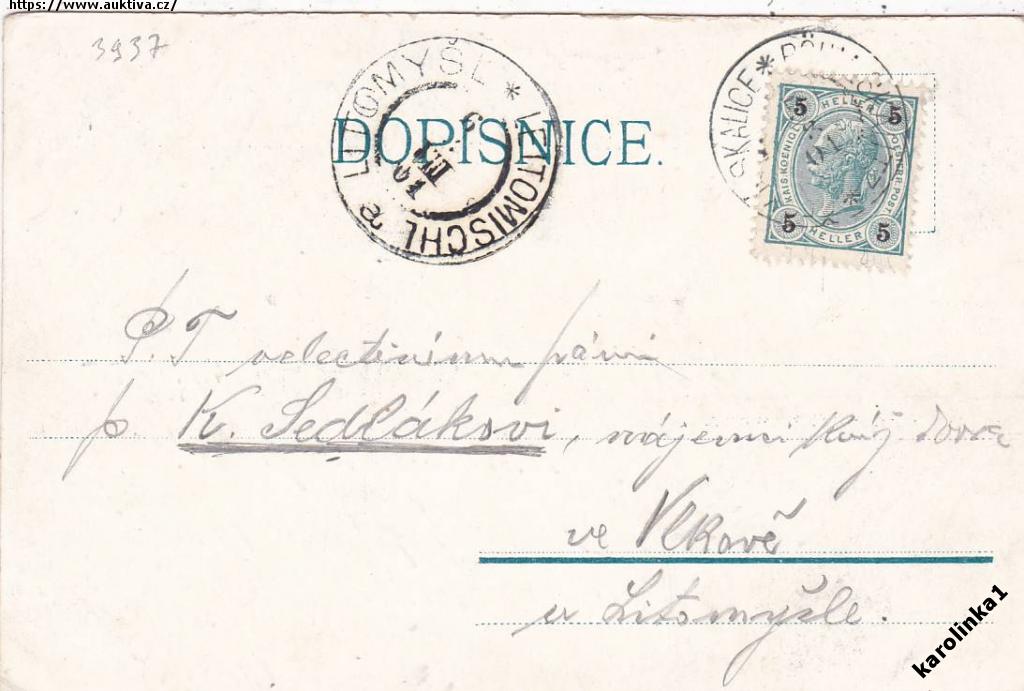 https://www.auktiva.cz/
3937
LITOMYŠL * LEITOMISCHL
6 VIII 01
DOPISNICE.
SKALICE *
5 HELLER 5
KAIS.KOENIGL. OESTERR.POST
5 HELLER 5
P.T velectěnému pánu
p. K. Sedlákovi, nájemci Kníž dvora
ve Vlkově
u Litomyšle.
karolinka1